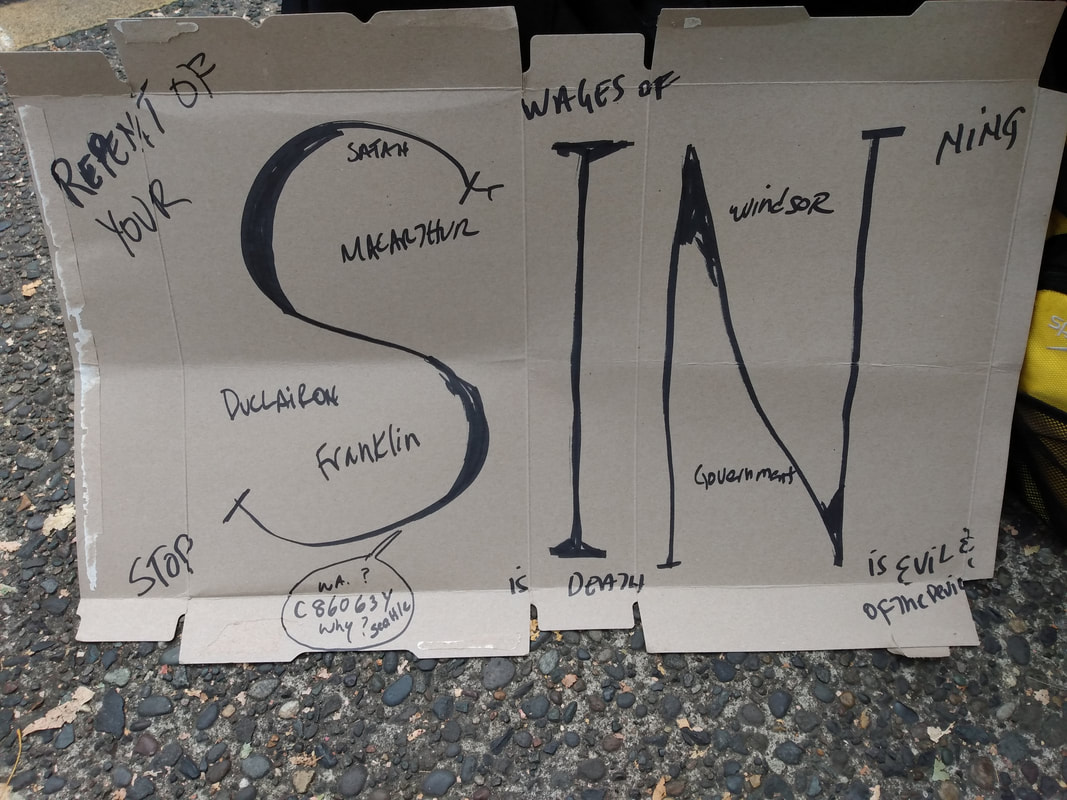 REPENT OF
YOUR
WAGES OF
SIN
NING
SATAN
MACARTHUR
Windsor
DUCLAIRON
Franklin
Government
STOP
WA. ?
C86063Y
Why? Seattle
is DEATH
is EVIL &
OF The Devil